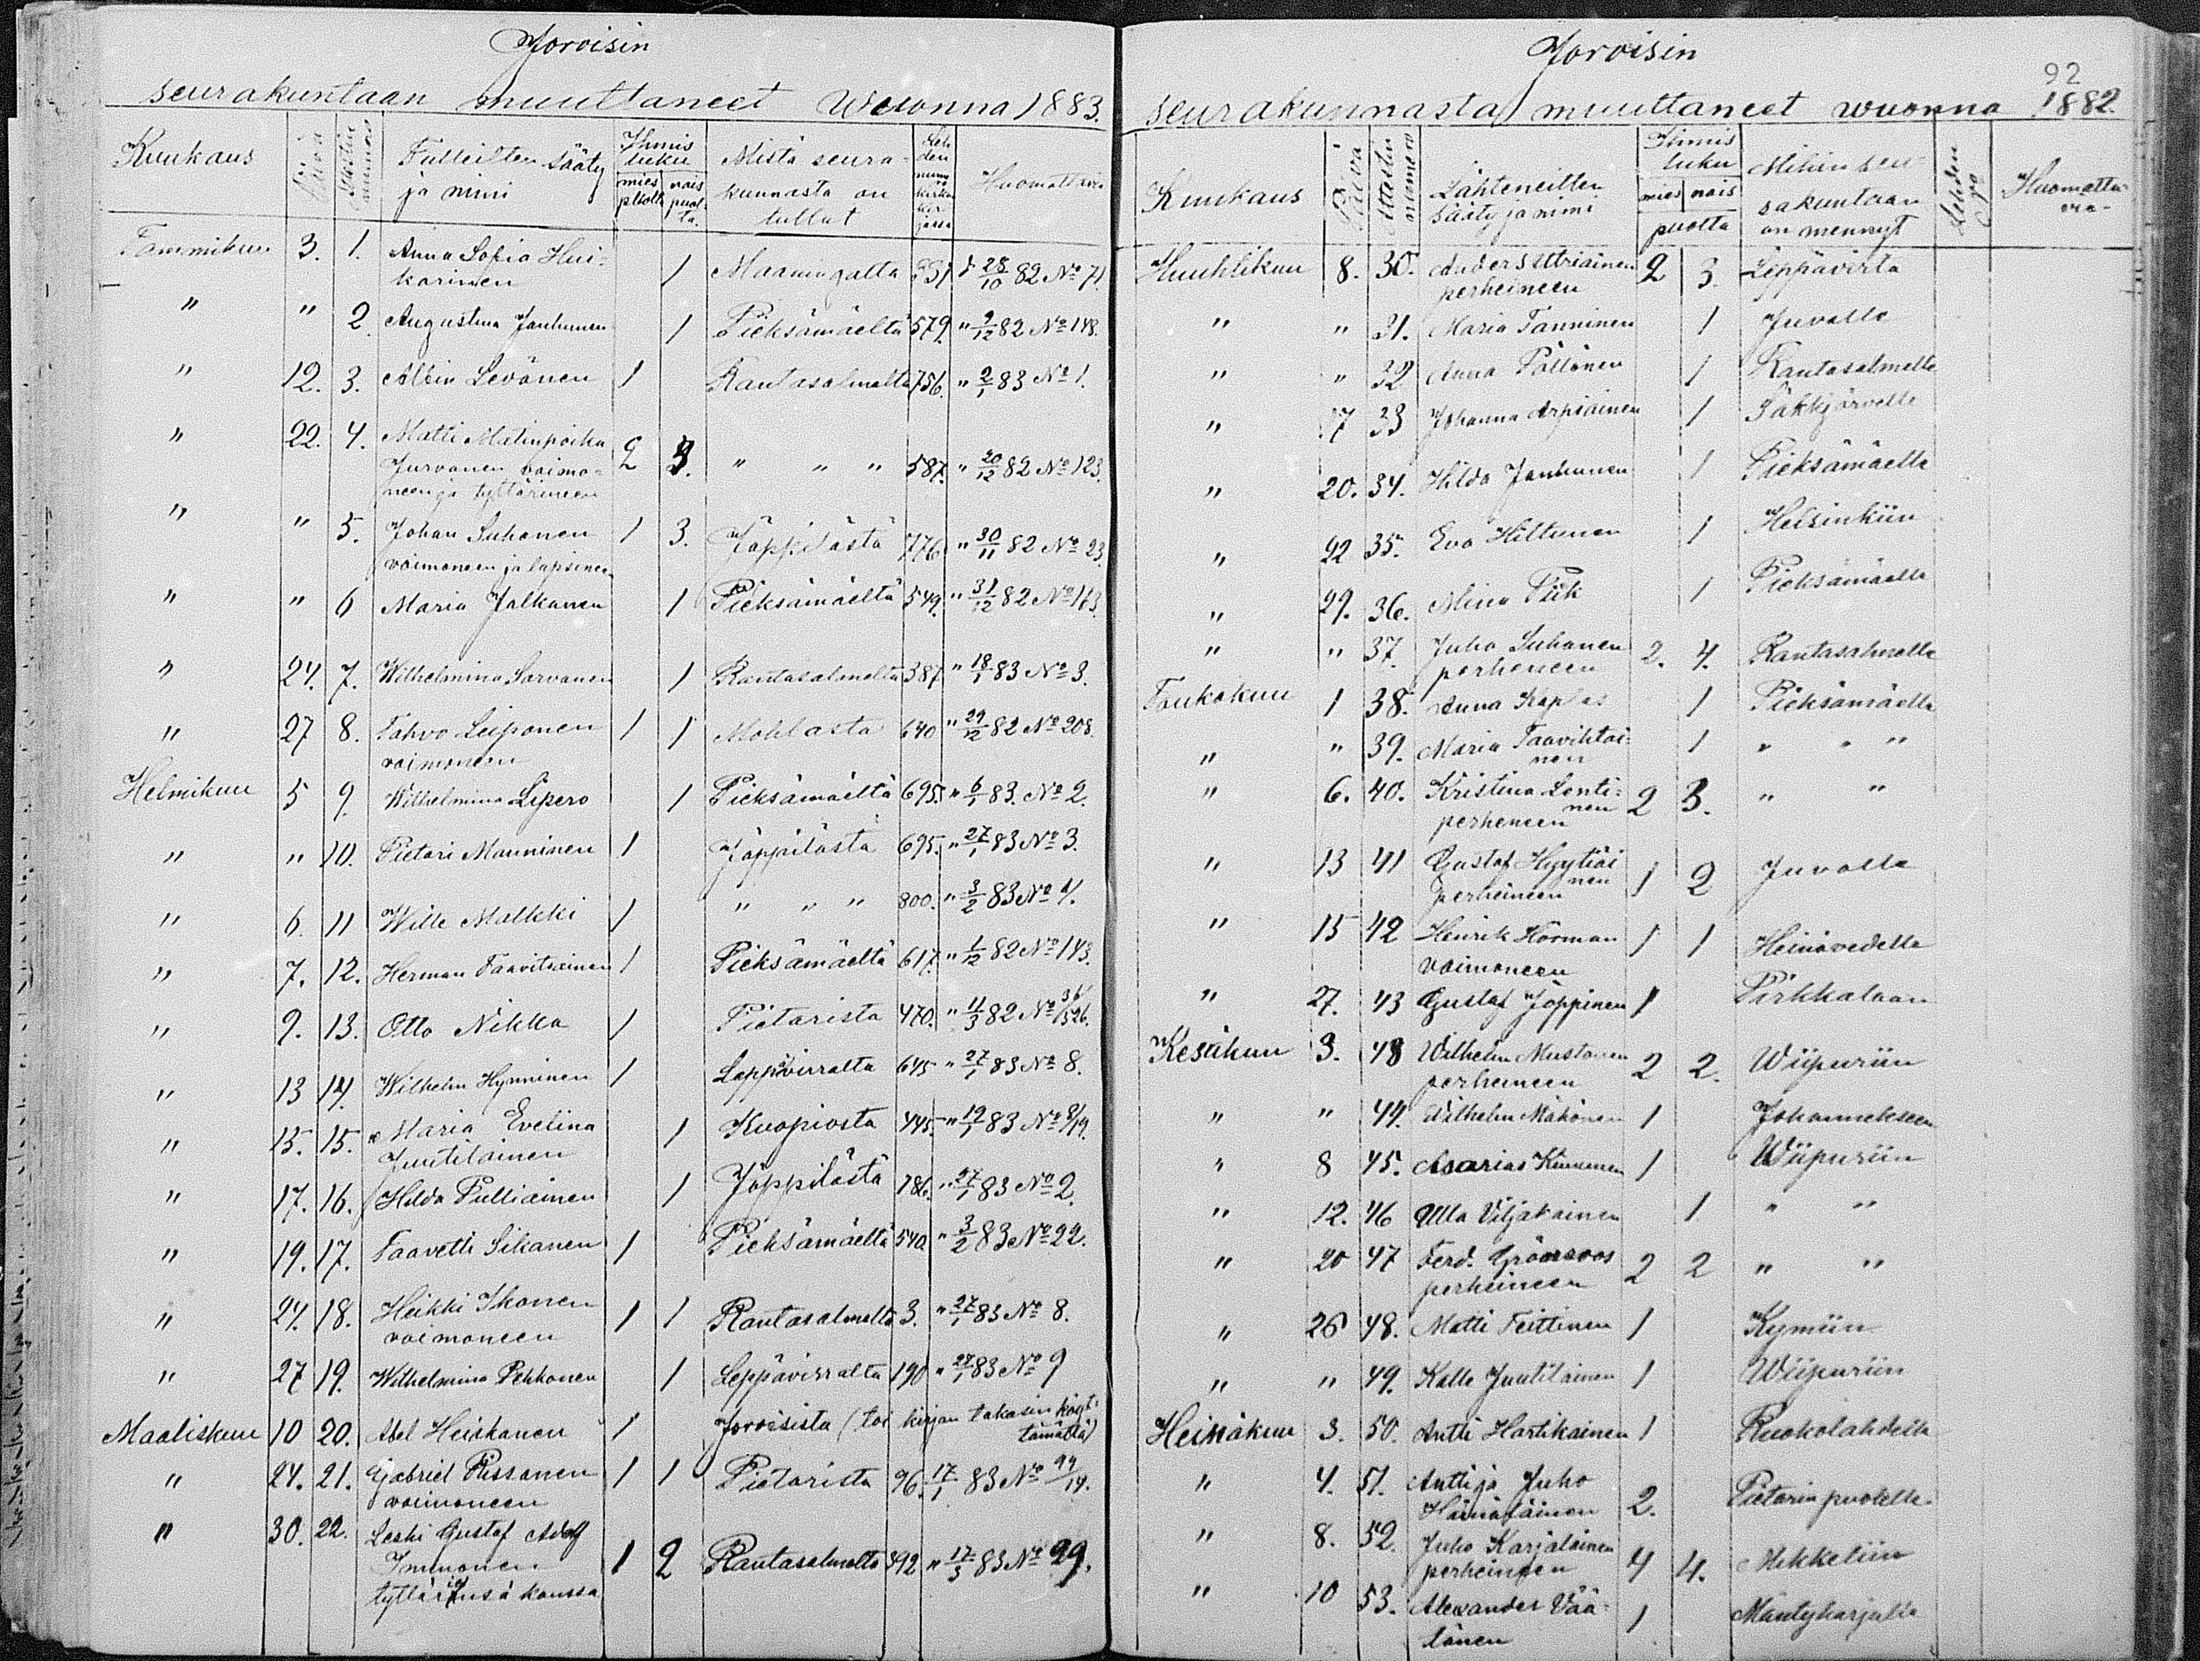 Joroisin
seurakuntaan muuttaneet Wuonna 1883.
Kuukaus Päivä Attestin numero Tulleitten sääty ja nimi Ihmis luku mies puolta nais puolta. Mistä seurakunnasta on tullut Huomattavia
Tammikuu 3. 1. Anna Sofia Huikarinen 1 Maaningalta 331 28/10 82 No 71
" " 2. Augustina Janhunen 1 Pieksämäeltä 579. " 9/12 82 No 148.
" 12. 3. Albin Levänen 1 Rantasalmelta 756. " 2/1 83 No 1.
" 22. 4. Matti Matinpoika 2 3. " " " 587. " 20/12 82 No 123.
Jurvanen vaimoneen ja tyttärineen
" " 5. Johan Suhonen 1 3. Jäppilästä 776 " 30/11 82 No 23.
vaimoneen ja lapsineen
" " 6 Maria Jalkanen 1 Pieksämäeltä 549. " 31/12 82 No 163.
" 24. 7. Wilhelmina Sarvanen 1 Rantasalmelta 387 " 18/1 83 No 3.
" 27 8. Tahvo Leiponen 1 1 Mohlasta 640 " 29/12 82 No 208.
vaimoneen
Helmikuu 5 9. Wilhelmina Lipero 1 Pieksämäeltä 695. " 6/1 83. No 2.
" " 10. Pietari Manninen 1 Jäppilästä 695. " 27/1 83 No 3.
" 6. 11 Wille Malkki 1 " " " 800. " 3/2 83 No 4.
" 7. 12. Herman Taavitsainen 1 Pieksämäeltä 617. " 1/12 82 No 143.
" 9. 13. Otto Nikka 1 Pietarista 470. " 11/3 82 No 36/1526.
" 13 14. Wilhelm Hynninen 1 Leppävirralta 645 " 27/1 83 No 8.
" 15. 15. Maria Evelina 1 Kuopiosta 445. " 19/1 83 No 8/19.
Juutilainen
" 17. 16. Hilda Pulliainen 1 Jäppilästä 786. " 27/1 83 No 2.
" 19. 17. Taavetti Sikanen 1 Pieksämäeltä 540. " 3/2 83 No 22.
" 24. 18. Heikki Ikonen 1 1 Rantasalmelta 3. " 27/1 83 No 8.
vaimoneen
" 27 19. Wilhelmina Pekkonen 1 Leppävirralta 190 " 27/1 83 No 9
Maaliskuu 10 20. Abel Heiskanen 1 Joroisista (toi kirjan takasin käyttämättä)
" 24. 21. Gabriel Rissanen 1 1 Pietarista 96. 17/1 83 No 99/14.
vaimoneen
" 30. 22. Leski Gustaf Adolf
Immonen 1 2 Rantasalmelta 392 " 17/3 83 No 29.
tyttäriensä kanssa
Jorvisin
92
seurakunnasta muuttaneet wuonna 1882.
Kuukaus Päivä Attestin numero Lähteneitten sääty ja nimi Ihmis luku mies nais puolta Mihin seurakuntaan on mennyt Lehden No Huomattavia
Huuhtikuu 8. 30. Anders Sttriainen 2 3. Leppävirta
perheineen
" " 31. Maria Tanninen 1 Juvalle
" " 32 Anna Pöllänen 1 Rantasalmelle
" 17 33 Johanna Arpiainen 1 Säkkjärvelle
" 20. 34. Hilda Janhunen 1 Pieksämäelle
" 22 35. Eva Hiltunen 1 Helsinkiin
" 29. 36. Mina Piik 1 Pieksämäelle
" " 37. Juho Suhonen 2. 4. Rantasalmelle
perheneen
Toukokuu 1 38. Anna Kaplas 1 Pieksämäelle
" " 39. Maria Taavihtainen 1 " " "
" 6. 40. Kristina Lentinen 2 3. " "
perheneen
" 13 41 Gustaf Hyytiäinen 1 2 Juvalle
perheineen
" 15 42 Henrik Hörman 1 1 Heinävedelle
vaimoneen
" 27. 43 Gustaf Jäppinen 1 Pirkkalaan
Kesäkuu 3. 48 Wilhelm Mustonen 2 2. Wiipuriin
perheineen
" " 44. Wilhelm Mähönen 1 Johannekseen
" 8 45. Asarias Kinnunen 1 Wiipuriin
" 12. 46 Ulla Viljakainen 1. " "
" 20 47 Ferd. Grönroos 2 2 " "
perheineen
" 26 48. Matti Teittinen 1 Kymiin
" " 49. Kalle Juutilainen 1 Wiipuriin
Heinäkuu 3. 50. Antti Hartikainen 1 Ruokolahdelle
" 4. 51. Antti ja Juho 2. Pietarin puolelle.
Hämäläinen
" 8. 52. Juho Karjalainen 4 4. Mikkeliin
perheineen
" 10 53. Alexander Väätänen 1 Mäntyharjulle